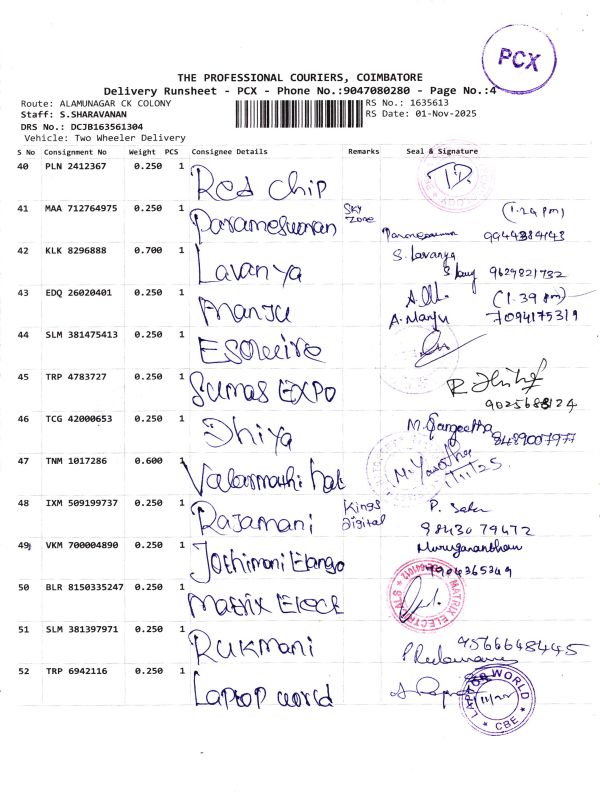 PCX
THE PROFESSIONAL COURIERS, COIMBATORE
Delivery Runsheet - PCX - Phone No.:9047080280 - Page No.:4
Route: ALAMUNAGAR CK COLONY
RS No.: 1635613
Staff: S.SHARAVANAN
RS Date: 01-Nov-2025
DRS No.: DCJB163561304
Vehicle: Two Wheeler Delivery
S No Consignment No Weight PCS Consignee Details Remarks Seal & Signature
40 PLN 2412367 0.250 1 Red chip
41 MAA 712764975 0.250 1 Parameswaran Sky Zone (1.24 pm)
9944384143
42 KLK 8296888 0.700 1 Lavanya S. Lavanya
9629821732
43 EDQ 26020401 0.250 1 Manju (1.39 pm)
A. Manju 7094175319
44 SLM 381475413 0.250 1 Esquire
45 TRP 4783727 0.250 1 Sumas EXPO
9025688124
46 TCG 42000653 0.250 1 Dhiya M. Sangeetha
8489007977
47 TNM 1017286 0.600 1 Valarmathi
1/11/25
48 IXM 509199737 0.250 1 Rajamani Kings Digital P. Sekar
98430 79472
49 VKM 700004890 0.250 1 Jothimani Elango Muruganandhan
50 BLR 8150335247 0.250 1 Matrix Elect
MATRIX ELECTRICALS
51 SLM 381397971 0.250 1 Rukmani 9566648445
52 TRP 6942116 0.250 1 Laptop world
LAPTOP WORLD
CBE